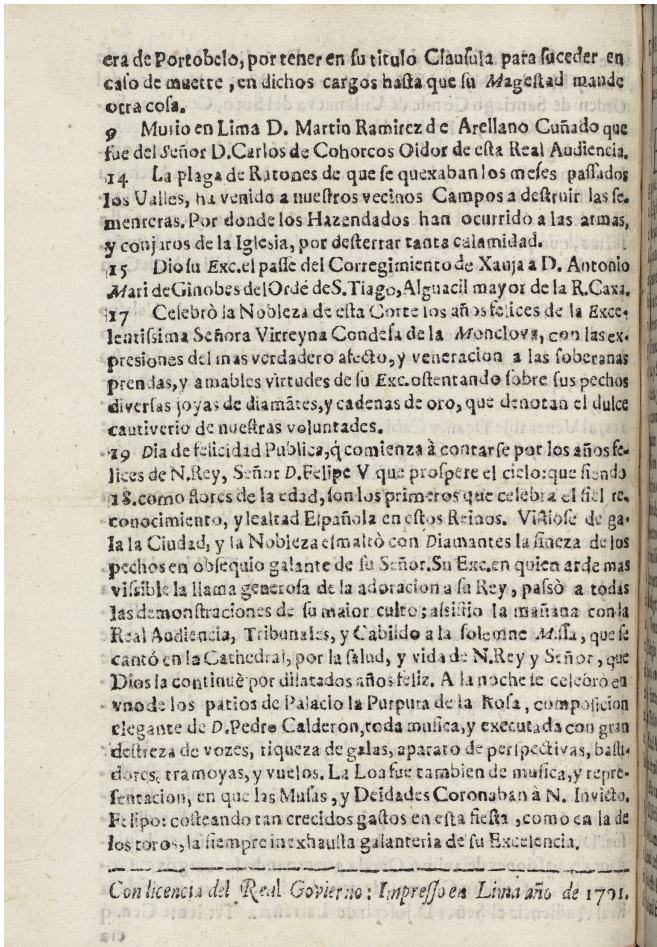 era de Portobelo, por tener en su titulo Clausula para suceder en
caso de muerte, en dichos cargos hasta que su Magestad mande
otra cosa.
9 Murio en Lima D. Martin Ramirez de Arellano Cuñado que
fue del Señor D. Carlos de Cohorcos Oidor de esta Real Audiencia.
14 La plaga de Ratones de que se quexaban los meses passados
los Valles, ha venido a nuestros vecinos Campos a destruir las se-
menteras. Por donde los Hazendados han ocurrido a las armas,
y conjuros de la Iglesia, por desterrar tanta calamidad.
15 Dio su Exc. el passe del Corregimiento de Xauja a D. Antonio
Mari de Ginobes del Ordẽ de S. Tiago, Alguacil mayor de la R. Caxa.
17 Celebrò la Nobleza de esta Corte los años felices de la Exce-
lentissima Señora Virreyna Condesa de la Monclova, con las ex-
presiones del mas verdadero afecto, y veneracion a las soberanas
prendas, y amables virtudes de su Exc. ostentando sobre sus pechos
diversas joyas de diamãtes, y cadenas de oro, que denotan el dulce
cautiverio de nuestras voluntades.
19 Dia de felicidad Publica, q̃ comienza à contarse por los años fe-
lices de N. Rey, Señor D. Felipe V que prospere el cielo: que siendo
18. como flores de la edad, son los primeros que celebra el fiel re-
conocimiento, y lealtad Española en estos Reinos. Vistiose de ga-
la la Ciudad, y la Nobleza esmaltó con Diamantes la fineza de los
pechos en obsequio galante de su Señor. Su Exc. en quien arde mas
vissible la llama generosa de la adoracion a su Rey, passò a todas
las demonstraciones de su maior culto; asistio la mañana con la
Real Audiencia, Tribunales, y Cabildo a la solemne Missa, que se
cantó en la Cathedral, por la salud, y vida de N. Rey y Señor, que
Dios la continuè por dilatados años feliz. A la noche se celebró en
vno de los patios de Palacio la Purpura de la Rosa, composicion
elegante de D. Pedro Calderon, toda musica, y executada con gran
destreza de vozes, riqueza de galas, aparato de perspectivas, basti-
dores, tramoyas, y vuelos. La Loa fue tambien de musica, y repre-
sentacion, en que las Musas, y Deidades Coronaban à N. Invicto.
Felipo: costeando tan crecidos gastos en esta fiesta, como en la de
los toros, la siempre inexhausta galanteria de su Excelencia.
Con licencia del Real Govierno: Impresso en Lima año de 1701.